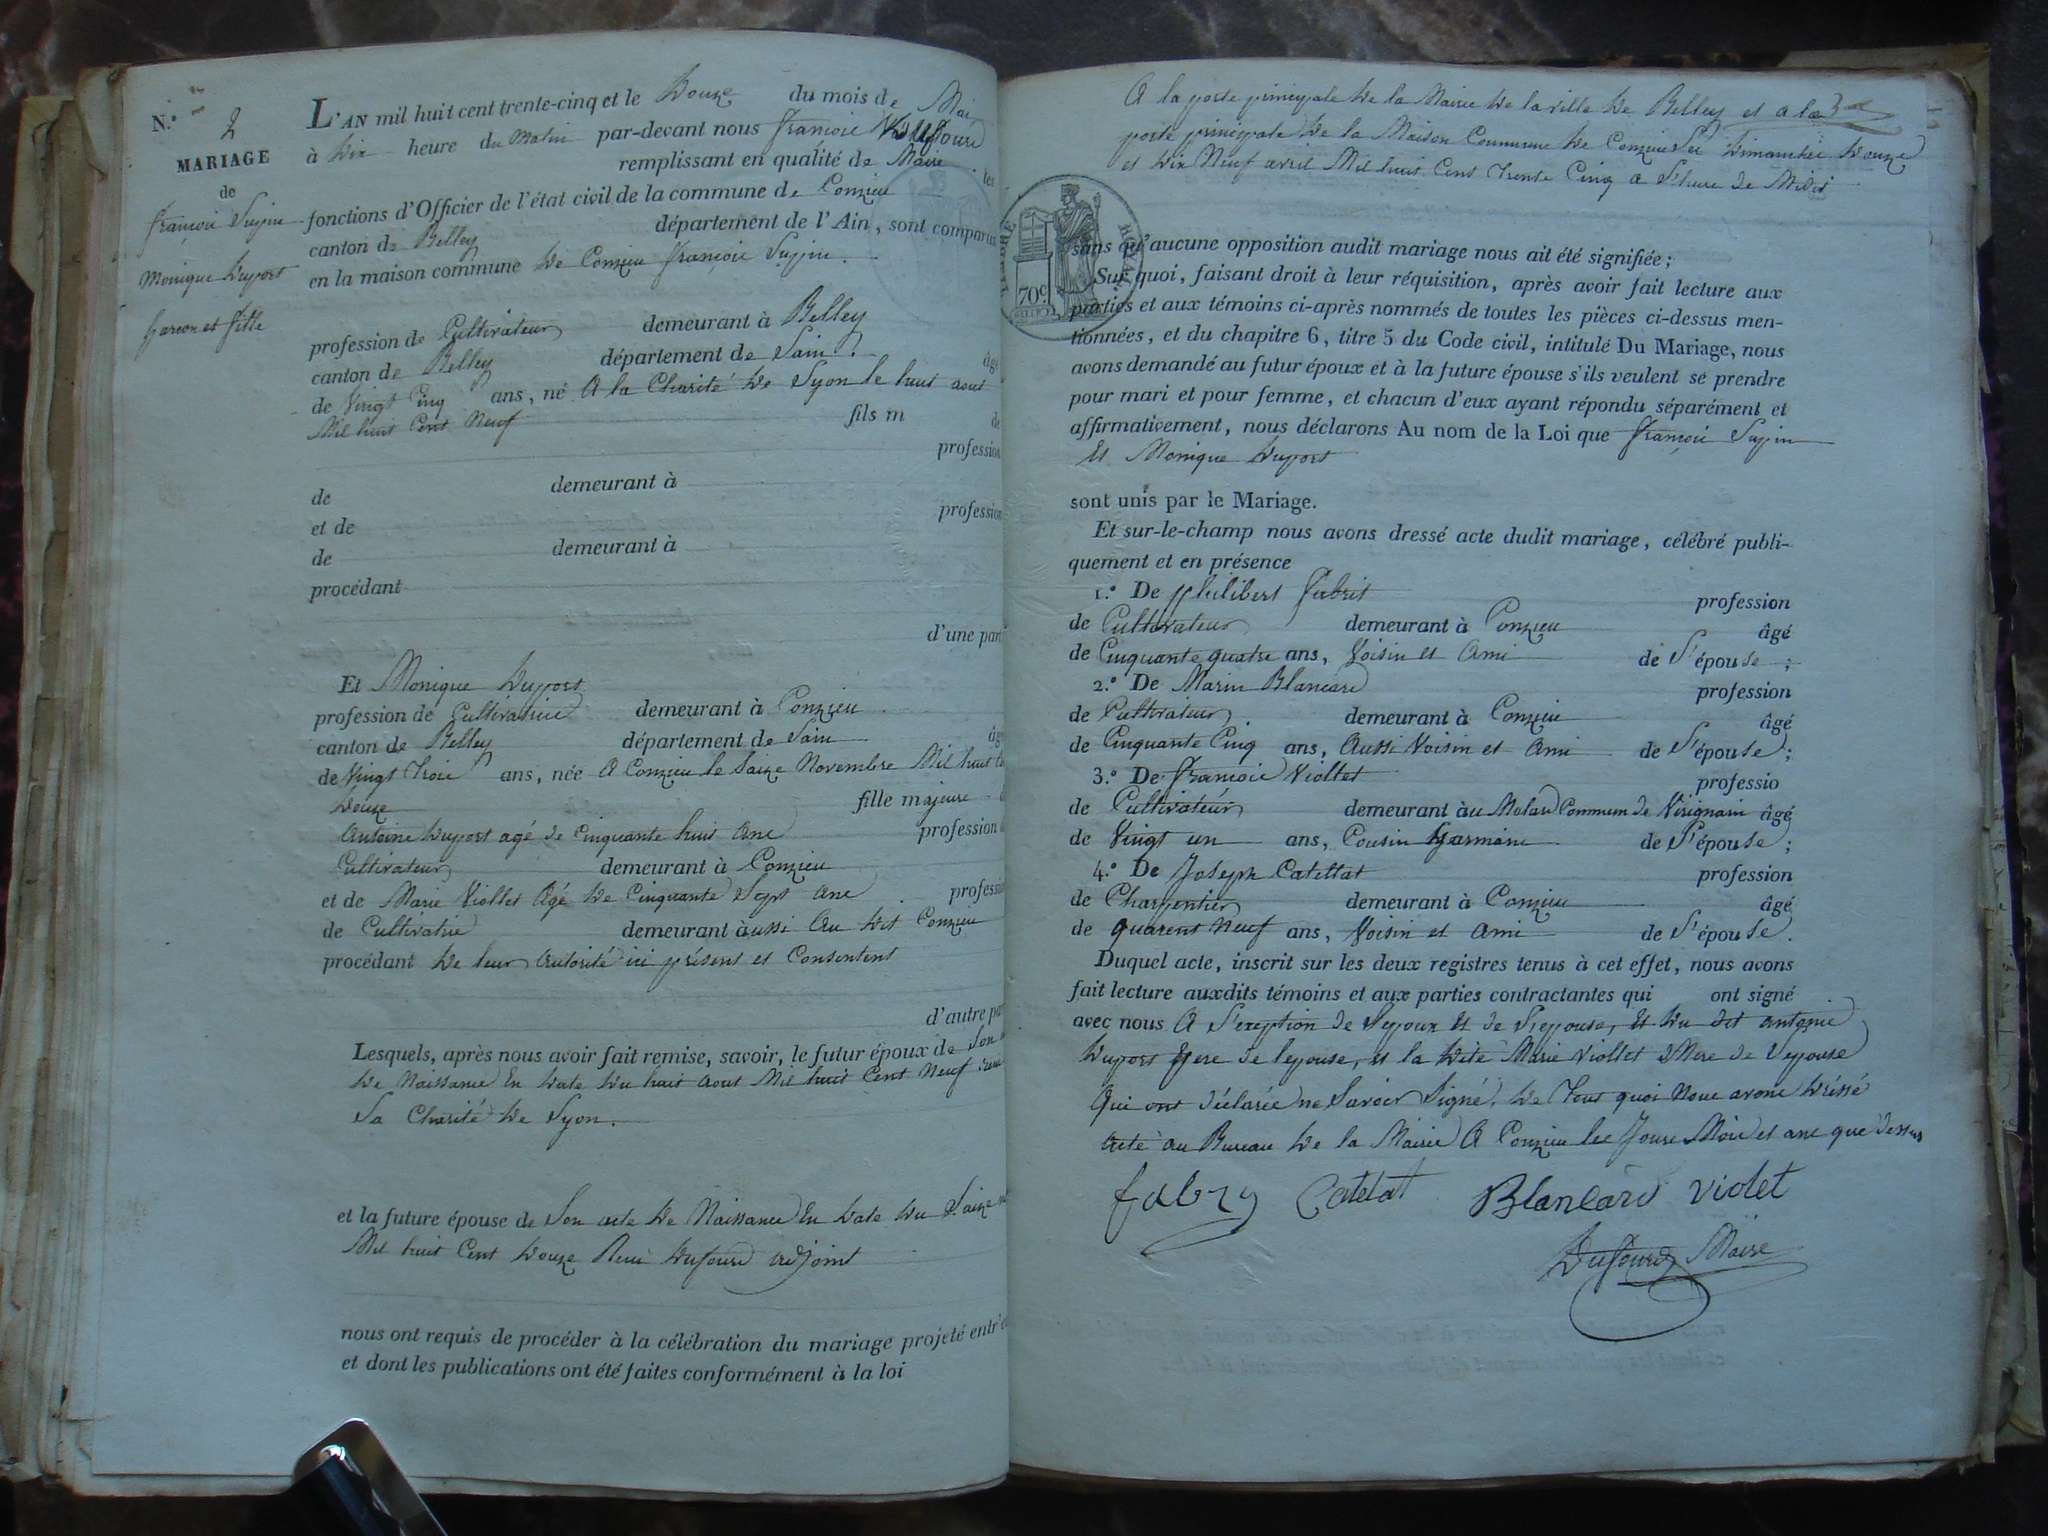 N.º 2
MARIAGE
de
françois Supin
Monique Duport
Garcon et fille
L'AN mil huit cent trente-cinq et le Douze du mois de Mai
à Dix heure du Matin par-devant nous françois Dufour
remplissant en qualité de Maire les
fonctions d'Officier de l'état civil de la commune de Conzieu
canton de Belley département de l'Ain, sont comparus
en la maison commune de Conzieu françois Supin
profession de Cultivateur demeurant à Belley
canton de Belley département de Lain. âgé
de Vingt Cinq ans, né A la Charité de Lyon le huit aout
Mil huit Cent Neuf fils m de
profession
de demeurant à
et de profession
de demeurant à
procédant
d'une part
Et Monique Duport
profession de Cultivatrice demeurant à Conzieu
canton de Belley département de Lain âgé
de Vingt Trois ans, née A Conzieu le Saize Novembre Mil huit
Douze fille majeure
Antoine Duport agé de Cinquante huit Ans profession
Cultivateur demeurant à Conzieu
et de Marie Viollet Agé de Cinquante Sept Ans profession
de Cultivatrice demeurant à ussi Au dit Conzieu
procédant de leur Autorité ici présent et Consentent
d'autre part
Lesquels, après nous avoir fait remise, savoir, le futur époux de Son
de Naissance En Date Du huit aout Mil huit Cent Neuf
La Charité de Lyon.
et la future épouse de Son acte de Naissance En Date du Saize
Mil huit Cent Douze Dufour adjoint
nous ont requis de procéder à la célébration du mariage projeté entr'
et dont les publications ont été faites conformément à la loi
A la porte principale de la Mairie de la ville de Belley et a la
porte principale de la Maison Commune de Conzieu Les Dimanches Douze
et Dix Neuf avril Mil huit Cent Trente Cinq a L'hure de Midi
70c.
sans qu'aucune opposition audit mariage nous ait été signifiée;
Sur quoi, faisant droit à leur réquisition, après avoir fait lecture aux
parties et aux témoins ci-après nommés de toutes les pièces ci-dessus men-
tionnées, et du chapitre 6, titre 5 du Code civil, intitulé Du Mariage, nous
avons demandé au futur époux et à la future épouse s'ils veulent se prendre
pour mari et pour femme, et chacun d'eux ayant répondu séparément et
affirmativement, nous déclarons Au nom de la Loi que françois Supin
Et Monique Duport
sont unis par le Mariage.
Et sur-le-champ nous avons dressé acte dudit mariage, célébré publi-
quement et en présence
1.º De philibert fabrit profession
de Cultivateur demeurant à Conzieu âgé
de Cinquante quatre ans, Voisin et Ami de L'épouse;
2.º De Marin Blancard profession
de Cultivateur demeurant à Conzieu âgé
de Cinquante Cinq ans, Aussi Voisin et Ami de L'épouse;
3.º De françois Viollet professio
de Cultivateur demeurant à u Molard Commune de Virignain âgé
de Vingt un ans, Cousin Germain de L'épouse;
4.º De Joseph Catellat profession
de Charpentier demeurant à Conzieu âgé
de quarent Neuf ans, Voisin et Ami de L'épouse.
Duquel acte, inscrit sur les deux registres tenus à cet effet, nous avons
fait lecture auxdits témoins et aux parties contractantes qui ont signé
avec nous A L'exeption de Lepoux Et de Lepouse, Et du dit antoine
Duport Pere de lepouse, et la Dite Marie Viollet Mere de Lepouse
Qui ont déclarée ne Savoir Signé, de Tout quoi Nous avons Dréssé
Acte au Bureau de la Mairie A Conzieu les Jours Mois et ans que Dessus
fabry Catelat Blancard violet
Dufour Maire